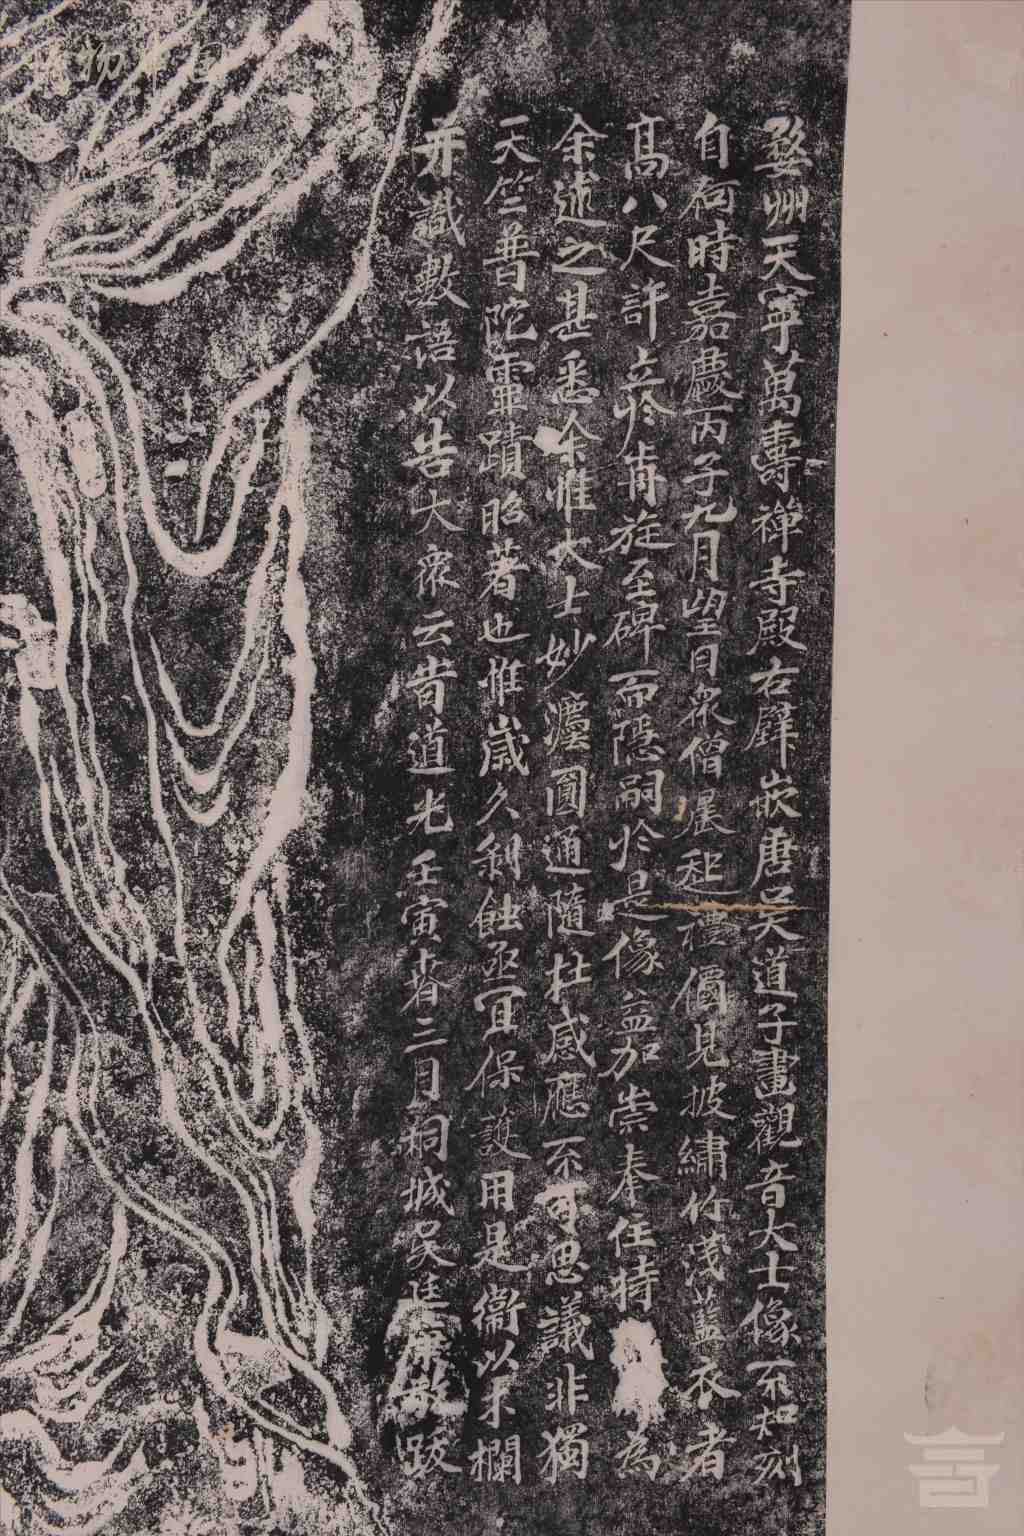 婺州天寧萬壽禪寺殿右壁嵌唐吳道子畫觀音大士像不知刻
自何時嘉慶丙子九月望日衆僧晨起禮償見披繡竹淺藍衣者
高八尺許立於前旋至碑而隱嗣於是像益加崇奉住持為
余述之甚悉余惟大士妙灋圓通隨在感應不可思議非獨
天竺普陀靈蹟昭著也惟歲久剝蝕亟宜保護用是衞以木欄
并識數語以告大衆云昔道光壬寅春三月桐城吳廷康敬跋